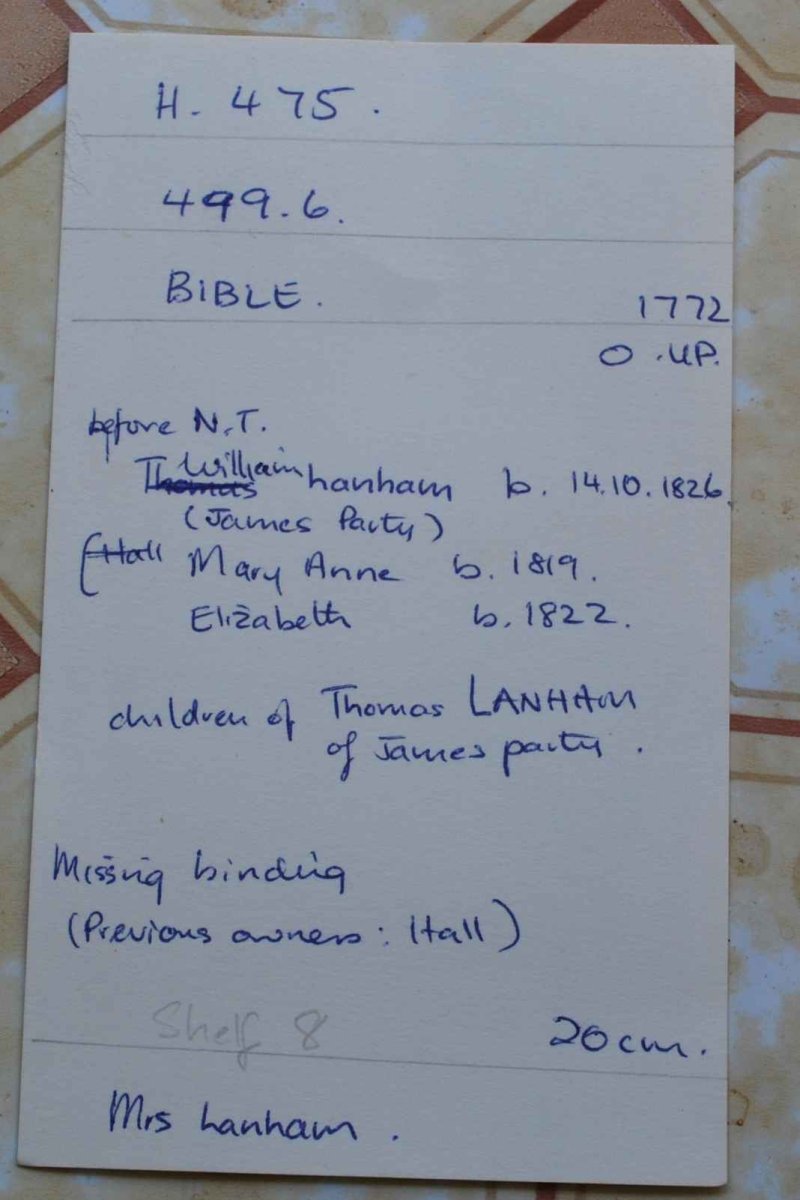 H. 475.
499.6.
BIBLE.
1772
O.UP.
before N.T.
Thomas William Lanham b. 14.10.1826.
(James Party)
(Hall Mary Anne b. 1819.
Elizabeth b. 1822.
children of Thomas LANHAM
of James party.
Missing binding
(Previous owners: Hall)
Shelf 8
20cm.
Mrs Lanham.